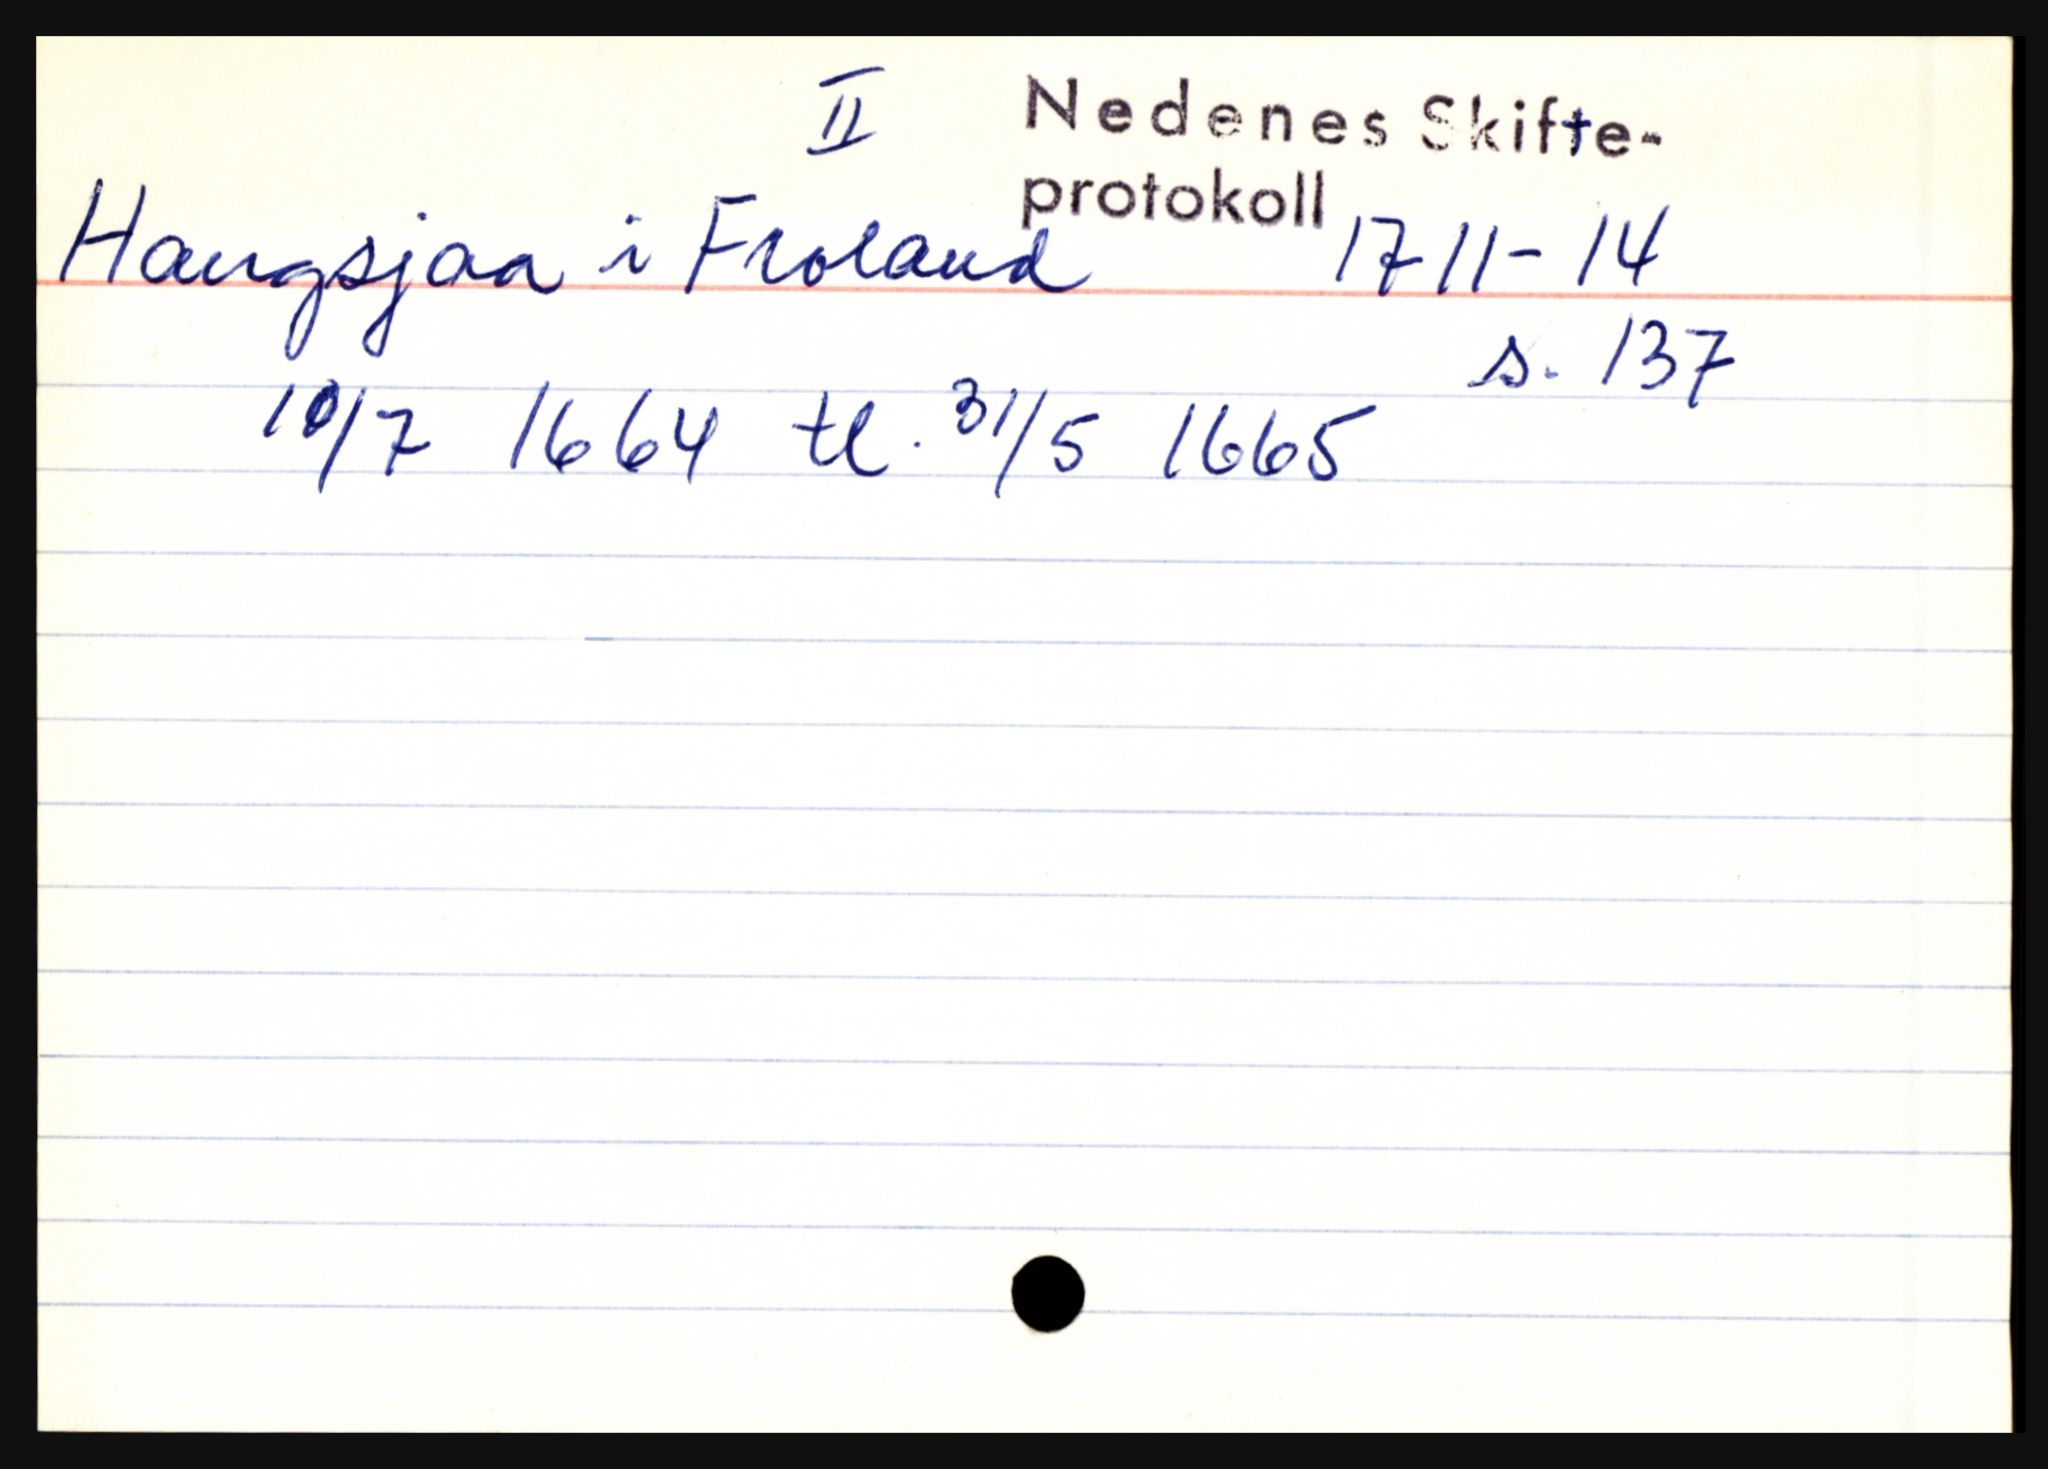 II Nedenes Skifte-
protokoll
Haugsjaa i Froland 1711-14
s. 137
10/7 1664 tl. 31/5 1665